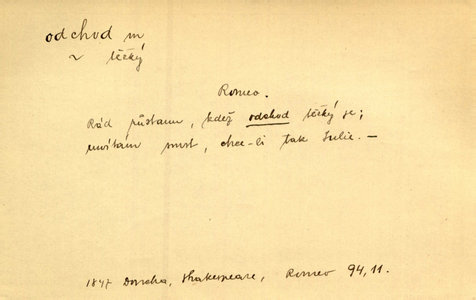 odchod m
~ těžký
Romeo.
Rád zůstanu, když odchod těžký je;
uvítám smrt, chce-li tak Julie. —
1847 Doucha, Shakespeare, Romeo 94,11.